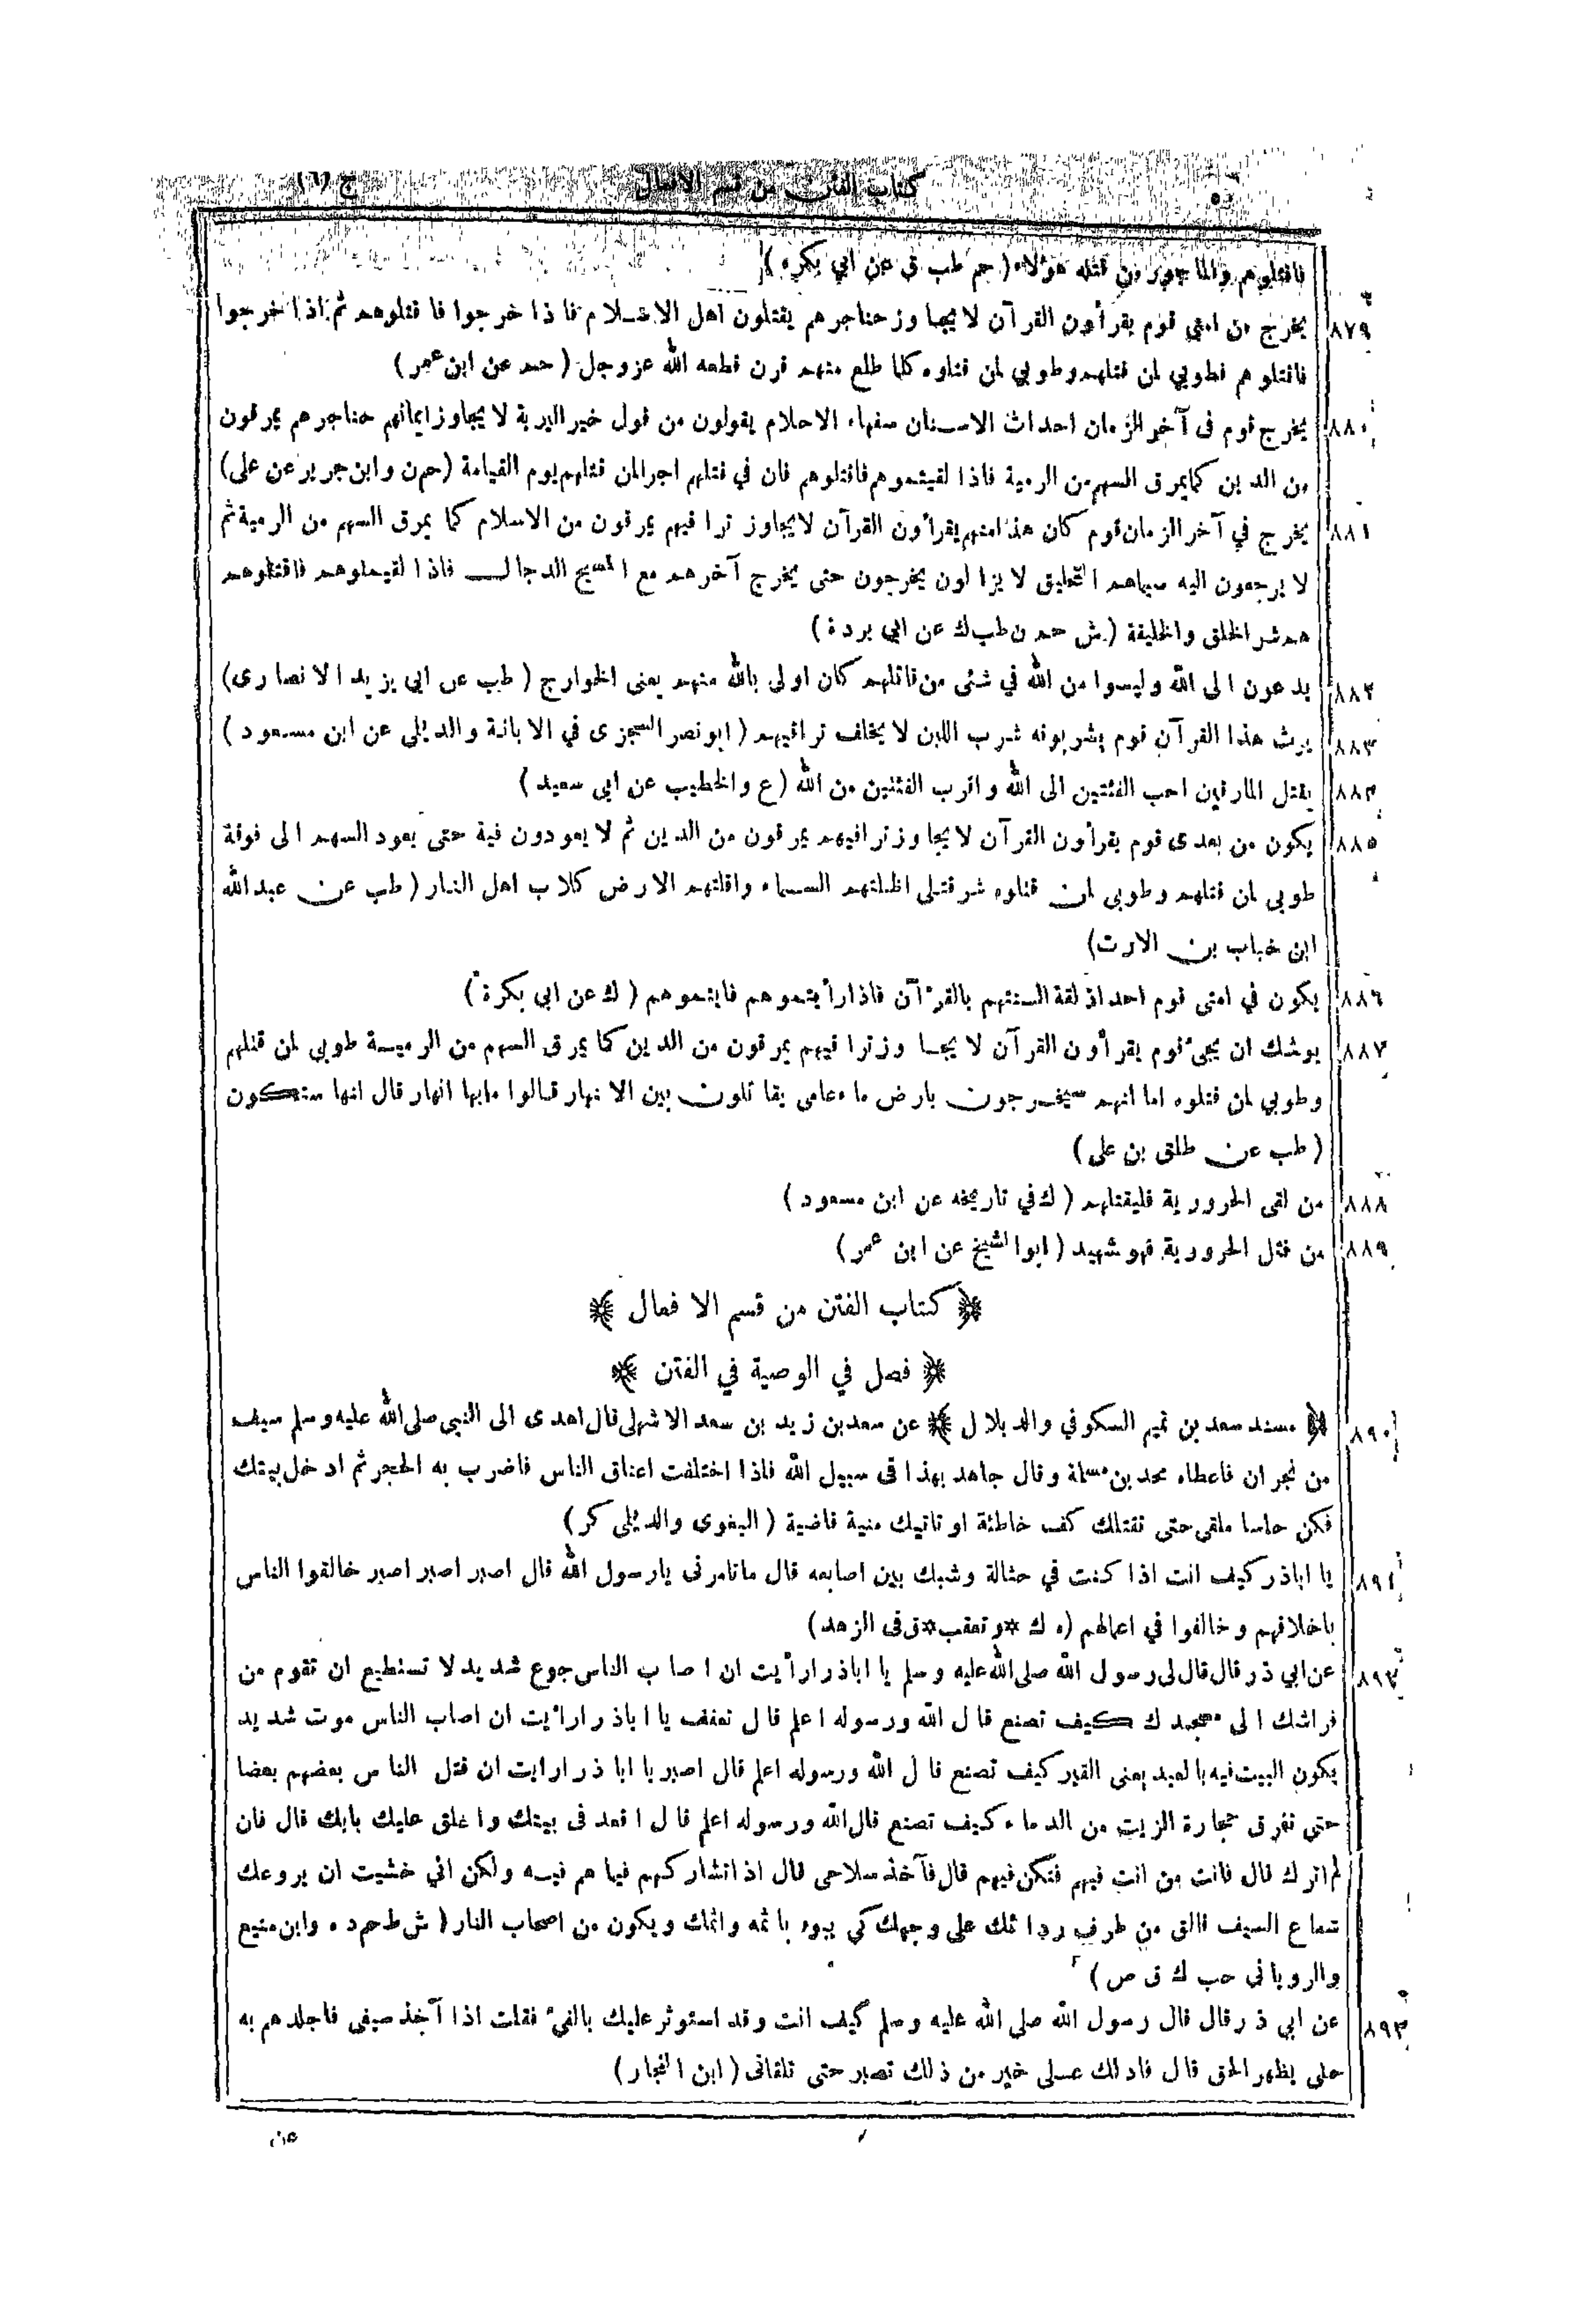 كتاب الفتن من قسم الافعال ج (٦)
فاقتلوهم والماجور من قتله هؤلاء (حم طب ق عن ابي بكره)
٨٧٩ يخرج من امتي قوم يقرأون القرآن لا يجاوز حناجرهم يقتلون اهل الاسلام فاذا خرجوا فاقتلوهم ثم اذا خرجوا
فاقتلوهم فطوبي لمن قتلهم وطوبي لمن قتلوه كلما طلع منهم قرن قطعه الله عزوجل (حم عن ابن عمر)
٨٨٠ يخرج قوم فى آخر الزمان احداث الاسنان سفهاء الاحلام يقولون من قول خير البرية لا يجاوز ايمانهم حناجرهم يمرقون
من الدين كما يمرق السهم من الرمية فاذا لقيتموهم فاقتلوهم فان في قتلهم اجرا لمن قتلهم يوم القيامة (حم ن وابن جرير عن على)
٨٨١ يخرج في آخر الزمان قوم كان هذا منهم يقرأون القرآن لا يجاوز تراقيهم يمرقون من الاسلام كما يمرق السهم من الرمية ثم
لا يرجعون اليه سيماهم التحليق لا يزالون يخرجون حتى يخرج آخرهم مع المسيح الدجال فاذا لقيتموهم فاقتلوهم
هم شر الخلق والخليقة (ش حم ن طب ك عن ابي بردة)
٨٨٢ يدعون الى الله وليسوا من الله في شئى من قاتلهم كان اولى بالله منهم يعنى الخوارج (طب عن ابي يزيد الانصارى)
٨٨٣ يرث هذا القرآن قوم يشربونه شرب اللبن لا يخلف تراقيهم (ابونصر السجزى في الابانة والديلمى عن ابن مسعود)
٨٨٤ يقتل المارقين احب الفئتين الى الله واقرب الفئتين من الله (ع والخطيب عن ابى سعيد)
٨٨٥ يكون من بعدى قوم يقرأون القرآن لا يجاوز تراقيهم يمرقون من الدين ثم لا يعودون فية حتى يعود السهم الى فوقة
طوبى لمن قتلهم وطوبى لمن قتلوه شر قتلى اظلتهم السماء واقلتهم الارض كلاب اهل النار (طب عن عبدالله
ابن خباب بن الارت)
٨٨٦ يكون في امتى قوم احداذ لقة السنتهم بالقرآن فاذا رأيتموهم فايتموهم (ك عن ابي بكرة)
٨٨٧ يوشك ان يجئ قوم يقرأون القرآن لا يجاوز تراقيهم يمرقون من الدين كما يمرق السهم من الرمية طوبي لمن قتلهم
وطوبي لمن قتلوه اما انهم سيخرجون بارض ماءعامى يقاتلون بين الانهار قالوا مابها انهار قال انها ستكون
(طب عن طلق بن على)
٨٨٨ من لقى الحرورية فليقتلهم (ك في تاريخه عن ابن مسعود)
٨٨٩ من قتل الحرورية فهو شهيد (ابوالشيخ عن ابن عمر)
﴿ كتاب الفتن من قسم الافعال ﴾
﴿ فصل في الوصية في الفتن ﴾
٨٩٠ ﴿ مسند سعد بن تميم السكوفي والد بلال ﴾ عن سعد بن زيد بن سعد الاشهلى قال اهدى الى النبي صلى الله عليه وسلم سيف
من نجران فاعطاه محمد بن مسلمة وقال جاهد بهذا فى سبيل الله فاذا اختلفت اعناق الناس فاضرب به الحجر ثم ادخل بيتك
فكن حلسا ملقى حتى تقتلك كف خاطئة او تاتيك منية قاضية (البغوى والديلمى كر)
٨٩١ يا اباذر كيف انت اذا كنت في حثالة وشبك بين اصابعه قال ماتامرنى يارسول الله قال اصبر اصبر اصبر خالقوا الناس
باخلاقهم وخالفوا في اعمالهم (ه ك *وتعقب* ق فى الزهد)
٨٩٢ عن ابي ذر قال قال لى رسول الله صلى الله عليه وسلم يا اباذر ارأيت ان اصاب الناس جوع شديد لا تستطيع ان تقوم من
فراشك الى مسجدك كيف تصنع قال الله ورسوله اعلم قال تعفف يا اباذر ارايت ان اصاب الناس موت شديد
يكون البيت فيه بالعبد يعنى القبر كيف تصنع قال الله ورسوله اعلم قال اصبر يا اباذر ارايت ان قتل الناس بعضهم بعضا
حتى تغرق حجارة الزيت من الدماء كيف تصنع قال الله ورسوله اعلم قال اقعد فى بيتك واغلق عليك بابك قال فان
لم اترك قال فانت من انت فيهم فتكن فيهم قال فآخذ سلاحى قال اذا تشاركهم فيما هم فيه ولكن اني خشيت ان يروعك
شعاع السيف فالق من طرف ردائك على وجهك كي يبوء باثمه واثمك ويكون من اصحاب النار (ش ط حم د ه وابن منيع
والروياني حب ك ق ص)
٨٩٣ عن ابي ذر قال قال رسول الله صلى الله عليه وسلم كيف انت وقد استوثر عليك بالفئ فقلت اذا آخذ سيفى فاجلدهم به
حتى يظهر الحق قال فادلك على خير من ذلك تصبر حتى تلقانى (ابن النجار)
عن